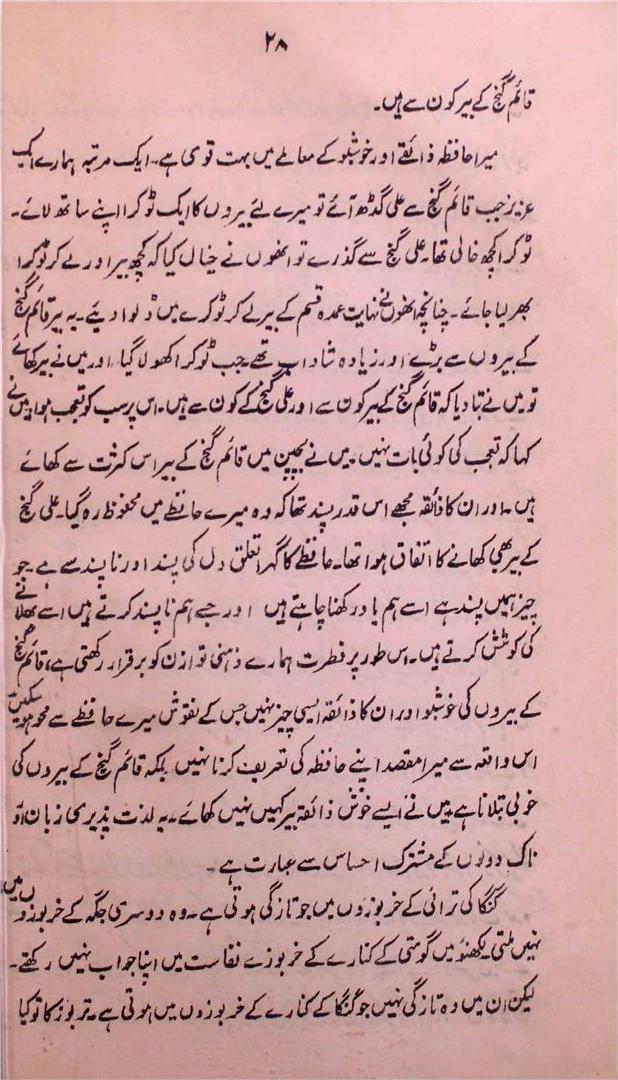 ۲۸
قائم گنج کے بیر کون سے ہیں۔
میرا حافظہ ذائقے اور خوشبو کے معاملے میں بہت قوی ہے۔ ایک مرتبہ ہمارے ایک
عزیز جب قائم گنج سے علی گڈھ آئے تو میرے لئے بیروں کا ایک ٹوکرا اپنے ساتھ لائے۔
ٹوکرا کچھ خالی تھا۔ علی گنج سے گذرے تو انھوں نے خیال کیا کہ کچھ بیر اور لے کر ٹوکرا
بھر لیا جائے۔ چنانچہ انھوں نے نہایت عمدہ قسم کے بیر لے کر ٹوکرے میں ڈلوا دیئے۔ یہ بیر قائم گنج
کے بیروں سے بڑے اور زیادہ شاداب تھے۔ جب ٹوکرا کھولا گیا اور میں نے بیر کھائے
تو میں نے بتا دیا کہ قائم گنج کے بیر کون سے اور علی گنج کے کون سے ہیں۔ اس پر سب کو تعجب ہوا میں نے
کہا کہ تعجب کی کوئی بات نہیں۔ میں نے بچپن میں قائم گنج کے بیر اس کثرت سے کھائے
ہیں۔ اور ان کا ذائقہ مجھے اس قدر پسند تھا کہ وہ میرے حافظے میں محفوظ رہ گیا۔ علی گنج
کے بیر بھی کھانے کا اتفاق ہوا تھا۔ حافظے کا گہرا تعلق دل کی پسند اور ناپسند سے ہے جو
چیز ہمیں پسند ہے اسے ہم یاد رکھنا چاہتے ہیں اور جسے ہم ناپسند کرتے ہیں اسے بھلانے
کی کوشش کرتے ہیں۔ اس طور پر فطرت ہمارے ذہنی توازن کو برقرار رکھتی ہے، قائم گنج
کے بیروں کی خوشبو اور ان کا ذائقہ ایسی چیز نہیں جس کے نقوش میرے حافظے سے محو ہو سکیں۔
اس واقعہ سے میرا مقصد اپنے حافظہ کی تعریف کرنا نہیں بلکہ قائم گنج کے بیروں کی
خوبی بتلانا ہے۔ میں نے ایسے خوش ذائقہ بیر کہیں نہیں کھائے۔ یہ لذت پذیری زبان اور
ناک دونوں کے مشترک احساس سے عبارت ہے۔
گنگا کی ترائی کے خربوزوں میں جو تازگی ہوتی ہے۔ وہ دوسری جگہ کے خربوزوں میں
نہیں ملتی لکھنؤ میں گومتی کے کنارے کے خربوزے نفاست میں اپنا جواب نہیں رکھتے۔
لیکن ان میں وہ تازگی نہیں جو گنگا کے کنارے کے خربوزوں میں ہوتی ہے۔ تربوز کا تو کیا